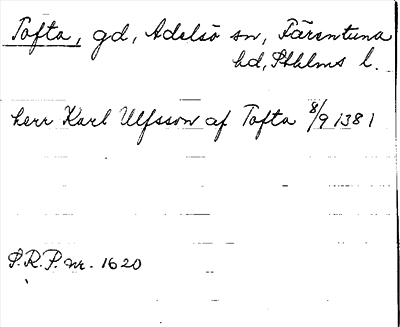 Tofta, gd, Adelsö sn, Färentuna
hd, Sthlms l.
herr Karl Ulfsson af Tofta 8/9 1381
S.R.P. nr. 1620